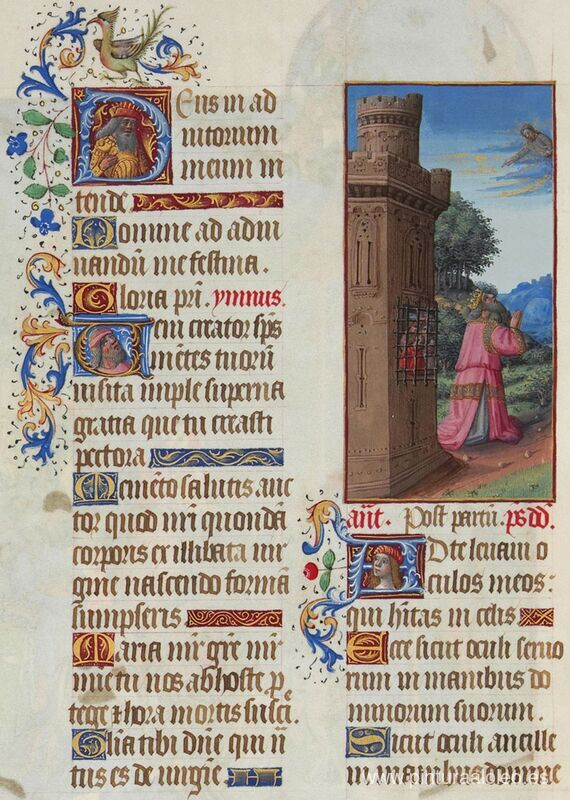 Deus in ad
iutorium
meum in
tende
Domine ad adiu
uandū me festina.
Gloria pr̄i. ymnus.
Veni creator sp̄s
mētes tuorū
uisita imple superna
gratia que tu creasti
pectora
Memēto salutis auc
tor quod nr̄i quondā
corporis ex illibata uir
gine nascendo formā
sumpseris
Maria mr̄ grē mr̄
mīe tu nos ab hoste p̄
tege & hora mortis suscipe.
Gl̄ia tibi dn̄e qui n
tus es de uirgīe
ant̄. Post partū. ps̄ dd̄.
Ad te leuaui o
culos meos:
qui hītas in celis
Ecce sicut oculi seruo
rum in manibus do
minorum suorum.
Sicut oculi ancille
in manibus domine
www.pinturasaloleo.es